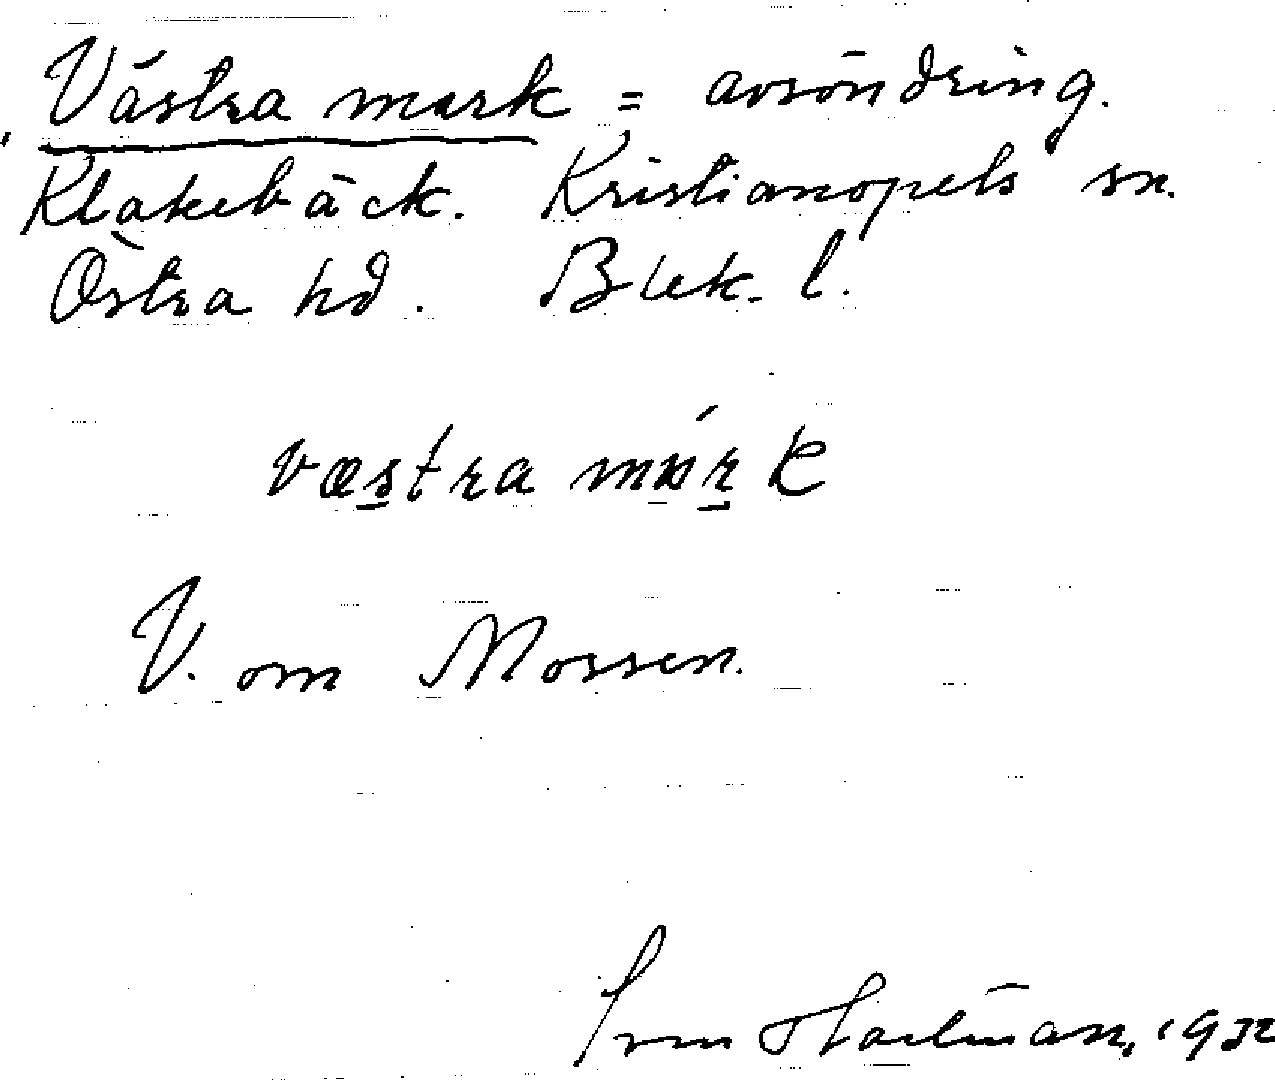 Västra mark = avsöndring.
Klakebäck. Kristianopels sn.
Östra hd. Blek. l.
væstra mark
V. om Mossen.
1932